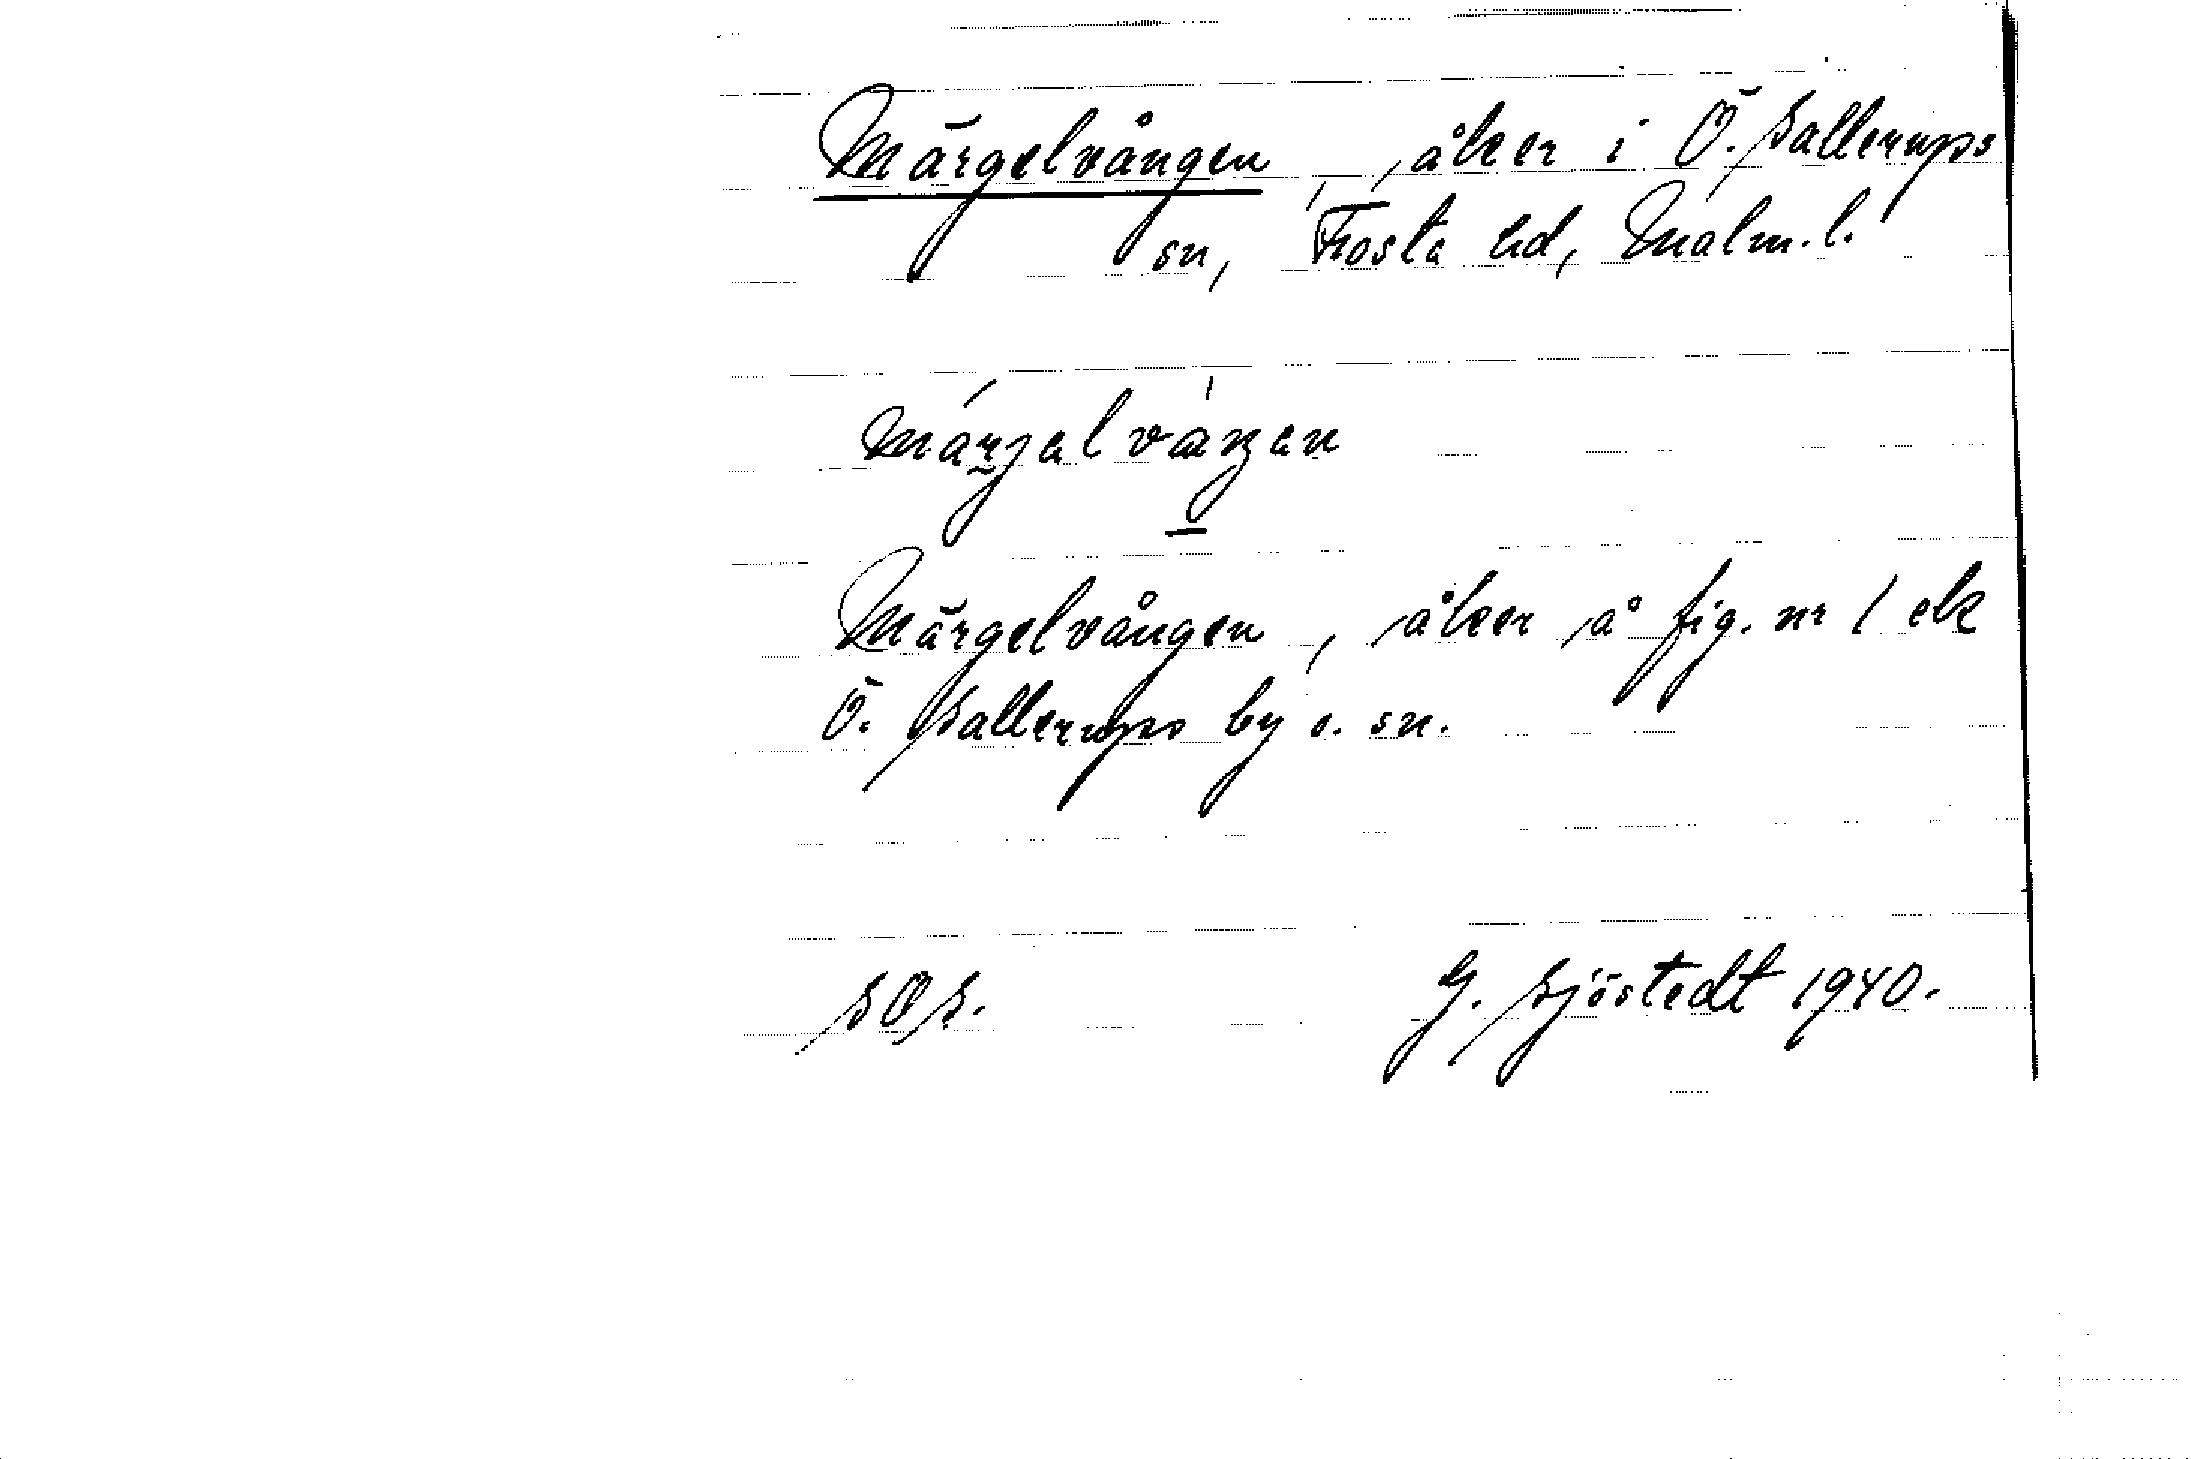 Märgelvången, åker i Ö. Sallerups
sn, Frosta hd, Malm. l.
márjəl váŋən
Märgelvången, åker å fig. nr 1 ek
Ö. Sallerups by o. sn.
SOS.
G. Sjöstedt 1940.